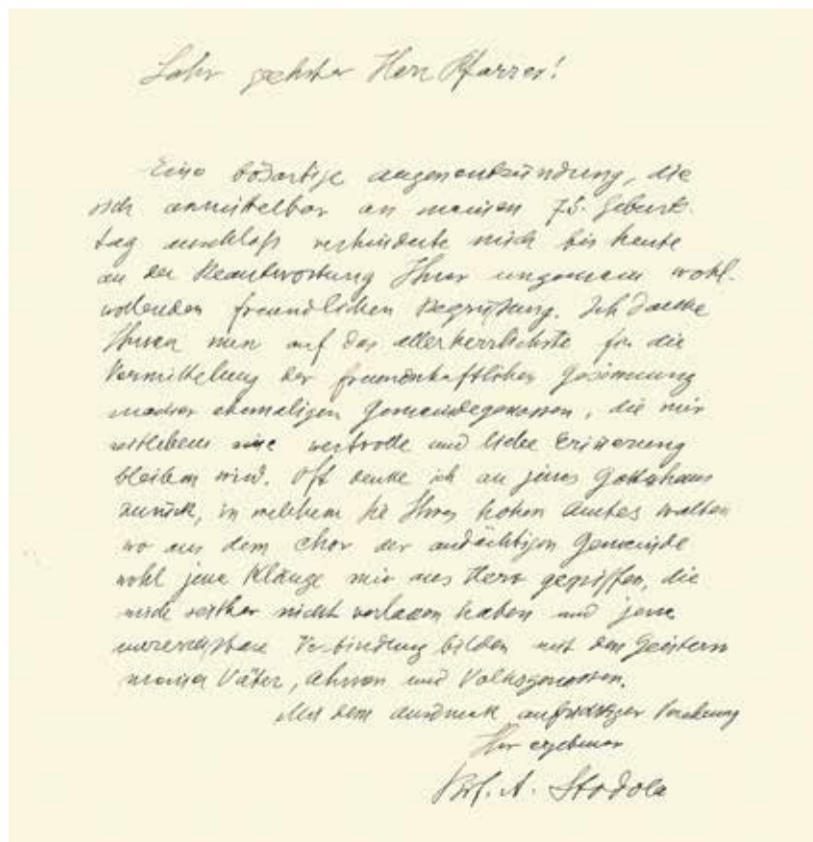 Sehr geehrter Herr Pfarrer!
Eine bösartige Augenentzündung, die
sich unmittelbar an meinen 75. Geburts-
tag anschloß verhinderte mich bis heute
an der Beantwortung Ihrer ungemein wohl-
wollenden freundlichen Begrüßung. Ich danke
Ihnen nun auf das allerherzlichste für die
Vermittelung der freundschaftlichen Gesinnung
meiner ehemaligen Gemeindegenossen, die mir
zeitlebens eine wertvolle und liebe Erinnerung
bleiben wird. Oft denke ich an jenes Gotteshaus
zurück, in welchem Sie Ihres hohen Amtes walten
wo aus dem Chor der andächtigen Gemeinde
wohl jene Klänge mir ans Herz gegriffen, die
mich seither nicht verlassen haben und jene
unzerreißbare Verbindung bilden mit den Geistern
meiner Väter, Ahnen und Volksgenossen.
Mit dem Ausdruck aufrichtiger Verehrung
Ihr ergebener
Prof. A. Stodola